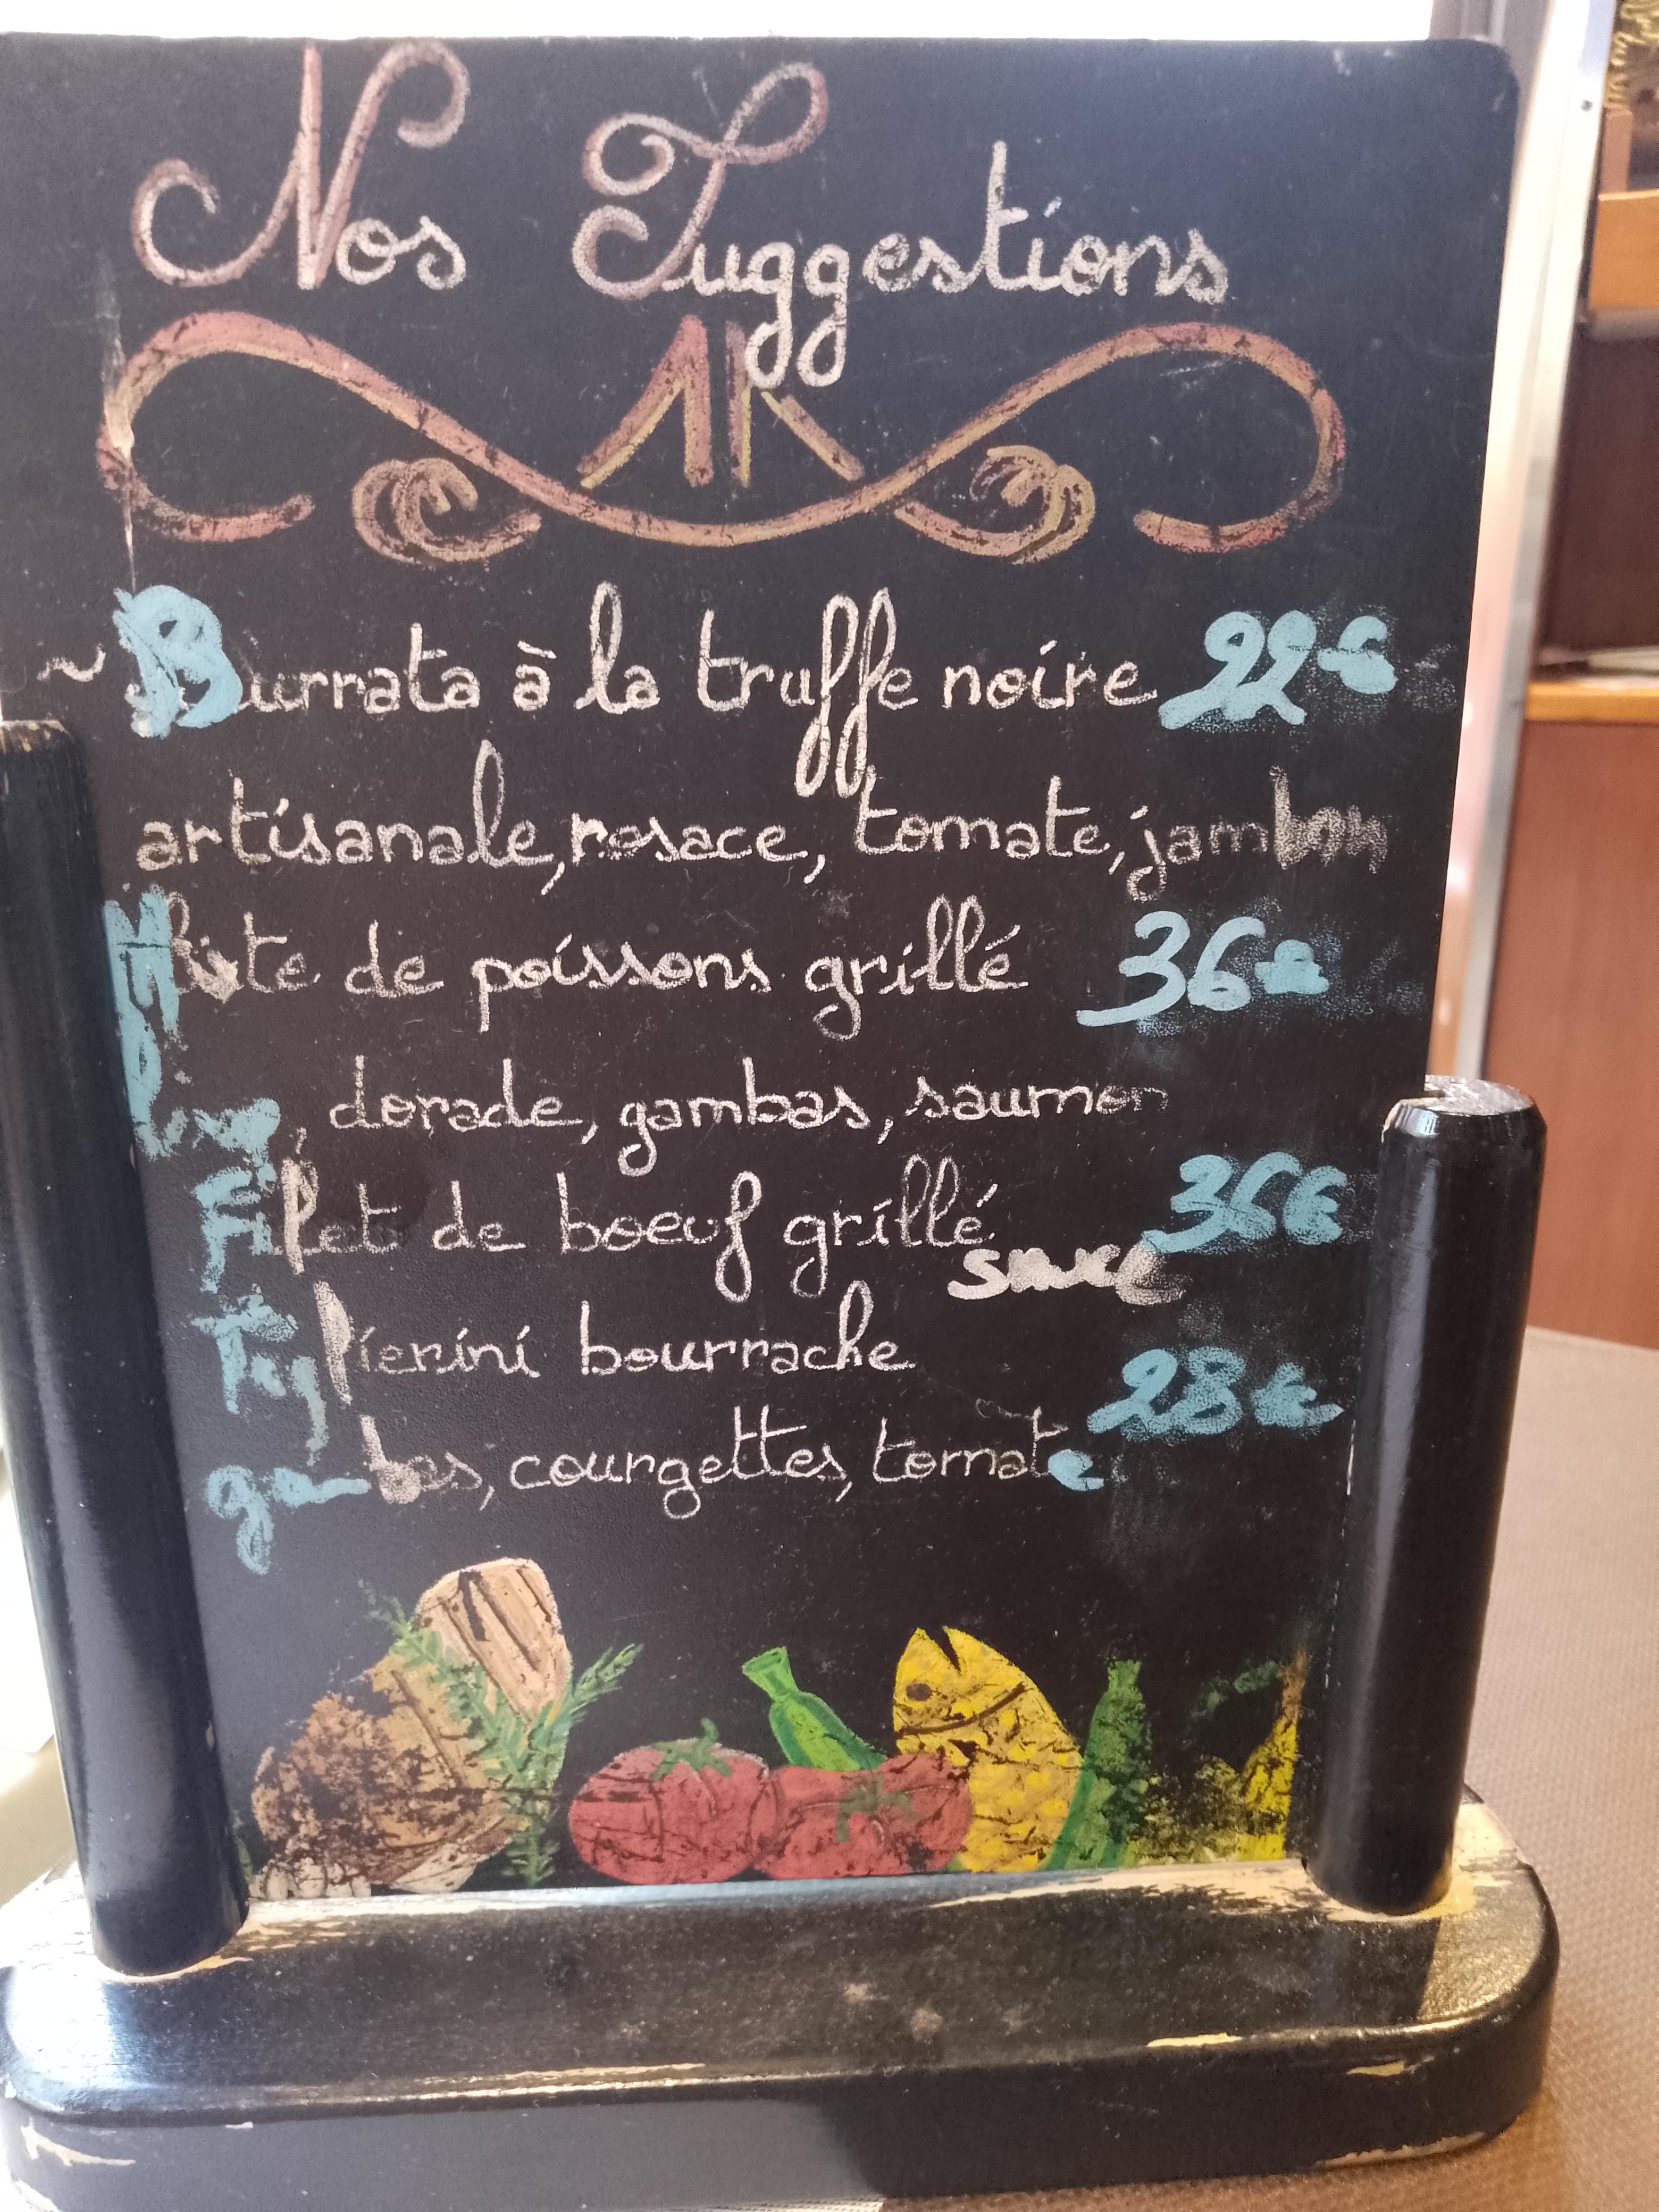 Nos Suggestions
~ Burrata à la truffe noire 22€
artisanale, rosace, tomate, jambon
de poissons grillé 36€
loup, dorade, gambas, saumon
Filet de boeuf grillé 36€
sauce
bourrache
28€
gambas, courgettes, tomate